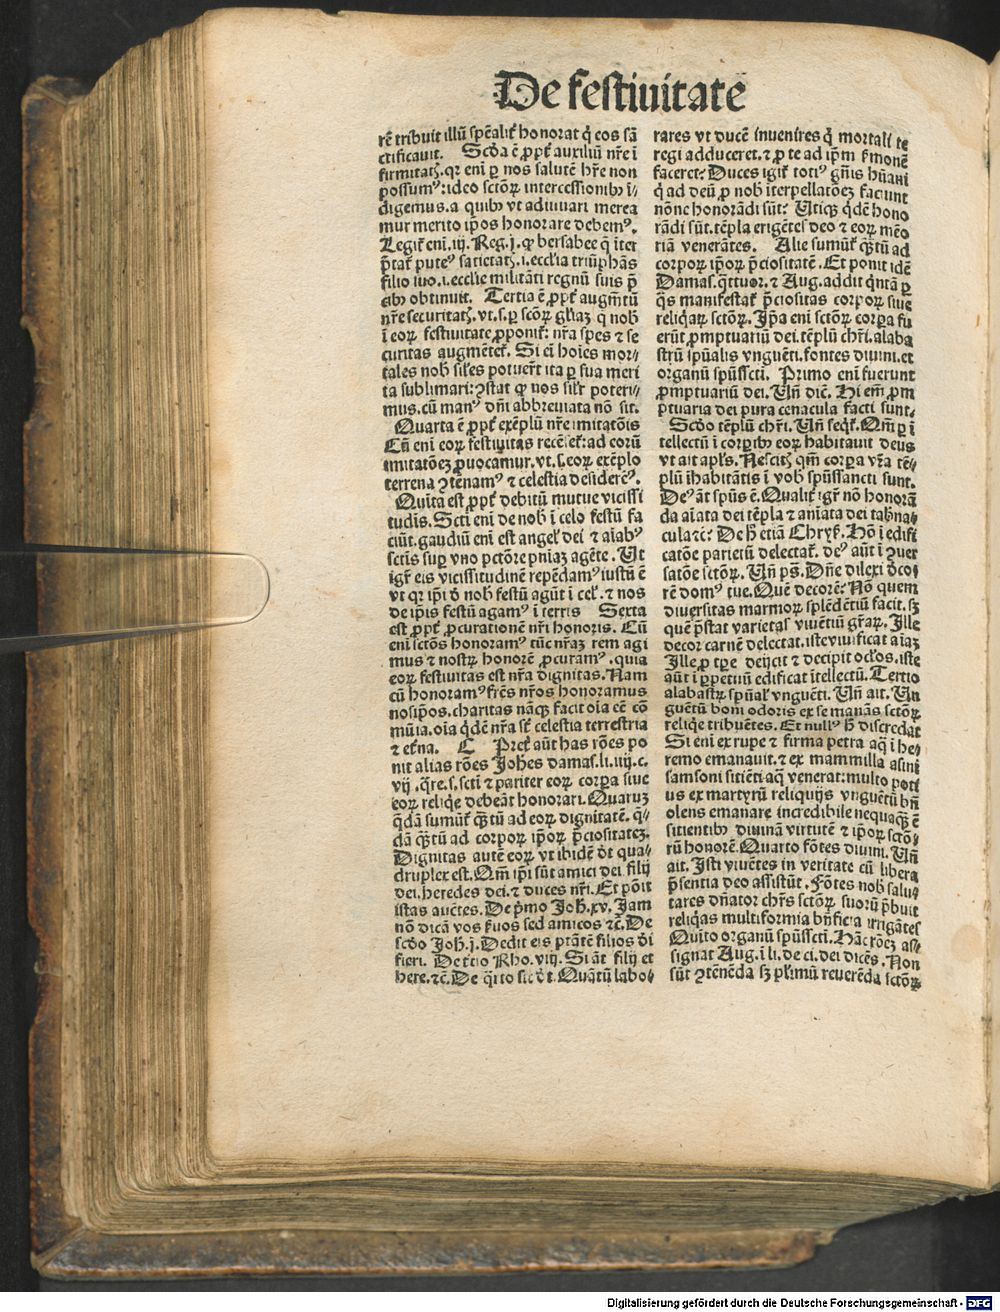 De festiuitate
rē tribuit illū spēalit̓ honorat q̇ eos sā
ctificauit. Scd̓a ē ꝓpt̓ auxiliū nr̄e ī
firmitatꝭ. qr eni ꝑ nos salutē hr̄e non
possumꝰ: ideo sctōꝝ intercessionibꝰ ī⸗
digemus. a quibꝰ vt adiuuari merea
mur merito ip̄os honorare debemꝰ.
Legit̓ eni. iij. Reg. j. ꝙ bersabee q̄ īter
p̄tat̓ puteꝰ satietatꝭ. i. ecclīa triūphās
filio suo. i. ecclie militāti regnū suis p̄
cibꝰ obtinuit. Tertia ē ꝓpt̓ augm̄tū
nr̄e securitatꝭ. vt. s. ꝑ scōꝝ gl̓iaꝫ q̄ nob̓
ī eoꝝ festiuitate ꝓponit̓: nr̄a spes ⁊ se
curitas augmētet̓. Si ei̇ hoīes mor⸗
tales nob̓ siles potuer̄t ita ꝑ sua meri
ta sublimari: ꝯstat ꝙ nos sil̓r poteri⸗
mus. cū manꝰ dn̄i abbreuiata nō sit.
Quarta ē ꝓpt̓ exēplū nr̄e imitatōis
Cū eni eoꝝ festiuitas recēset̓: ad eorū
imitatōeꝫ ꝓuocamur. vt. s. eoꝝ exēplo
terrena ꝯtēnamꝰ ⁊ celestia desiderēꝰ.
Quīta est ꝓpt̓ debitū mutue vicissi
tudīs. Scti eni de nob̓ ī celo festū fa
ciūt. gaudiū eni est angel̓ dei ⁊ aīabꝰ
sctīs suꝑ vno pctōre pniaꝫ agēte. Ut
igr̄ eis vicissitudinē repēdamꝰ iustū ē
vt qr ip̄i d̓ nob̓ festū agūt ī cel̓. ⁊ nos
de ip̄is festū agamꝰ ī terris Sexta
est ꝓpt̓ ꝓcurationē nr̄i honoris. Cū
eni sctōs honoramꝰ tūc nr̄aꝫ rem agi
mus ⁊ nostꝝ honorē ꝓcuramꝰ. quia
eoꝝ festiuitas est nr̄a dignitas. Nam
cū honoramꝰ frēs nr̄os honoramus
nosip̄os. charitas nāqꝫ facit oīa eē cō
mūia. oīa q̇dē nr̄a sꝫ celestia terrestria
⁊ et̓na. C Pret̓ aūt has rōes po
nit alias rōes Joh̓es damas. li. iiij. c.
vij. q̄re. s. scti ⁊ pariter eoꝝ corꝑa siue
eoꝝ reliq̄e debeāt honorari. Quaruꝫ
q̄dā sumūt̓ q̄ꝫtū ad eoꝝ dignitatē. q̄⸗
dā q̄ꝫtū ad corpoꝝ ip̄oꝝ p̄ciositateꝫ.
Dignitas autē eoꝝ vt ibidē d̓r qua⸗
druplex est. Qm̄ ip̄i sūt amici dei filij
dei. heredes dei. ⁊ duces nr̄i. Et pōit
istas auctes. De p̄mo Joh̓. xv. Jam
nō dicā vos ẜuos sed amicos ⁊c̄. De
scd̓o Joh̓. j. Dedit eis ptātē filios d̓i
fieri. De t̓cio Rho. viij. Si āt filij et
here. ⁊c̄. De q̄rto sic d̓t. Quātū labo⸗
rares vt ducē inuenires q̇ mortali te
regi adduceret. ⁊ ꝓ te ad ip̄m ẜmonē
faceret? Duces igit̓ totiꝰ gn̄is hūani
q̇ ad deū ꝓ nob̓ īterpellatōeꝫ faciunt
nōne honorādi sūt? Utiqꝫ q̇dē hono
rādi sūt. tēpla erigētes deo ⁊ eoꝝ mēo
riā venerātes. Alie sumūt̓ q̄ꝫtū ad
corpoꝝ ip̄oꝝ p̄ciositatē. Et ponit idē
Damas. q̄ttuor. ⁊ Aug. addit q̇ntā ꝑ
q̄s manifestat̓ p̄ciositas corpoꝝ siue
reliq̄aꝝ sctōꝝ. Ip̄a eni sctōꝝ corꝑa fu
erūt ꝓmptuariū dei. tēplū chr̄i. alaba
strū spūalis vnguēti. fontes diuini. et
organū spūssctī. Primo eni fuerunt
ꝓmptuariū dei. Un̄ dic̄. Hi em̄ ꝓm
ptuaria dei pura cenacula facti sunt.
Scd̓o tēplū chr̄i. Un̄ seqt̓. Qm̄ ꝑ ī
tellectū ī corꝑibꝰ eoꝝ habitauit deus
vt ait apl̓s. Nescitꝭ qm̄ corꝑa vr̄a tē⸗
plū īhabitātis ī vob̓ spūssancti sunt.
Deꝰ āt spūs ē. Qualit̓ igr̄ nō honorā
da aīata dei tēpla ⁊ aīata dei tab̓na⸗
cula ⁊c̄? De h̓ etiā Chryẜ. Hō ī edifi
catōe parietū delectat̓. deꝰ aūt ī ꝯuer
satōe sctōꝝ. Un̄ ps̄. Dn̄e dilexi d̓co
rē domꝰ tue. Quē decorē? Nō quem
diuersitas marmoꝝ splēdētiū facit. sꝫ
quē p̄stat varietas viuētiū gr̄aꝝ. Ille
decor carnē delectat. iste viuificat aīaꝫ
Ille ꝓ tꝑe deijcit ⁊ decipit oc̓los. iste
aūt ī ꝑpetuū edificat ītellectū. Tertio
alabastꝝ spūal̓ vnguēti. Un̄ ait. Un
guētū boni odoris ex se manās sctōꝝ
reliq̄e tribuētes. Et nullꝰ h̓ discredat
Si eni ex rupe ⁊ firma petra aq̄ ī he⸗
remo emanauit. ⁊ ex mammilla asini
samsoni sitiēti aq̄ venerat: multo poti
us ex martyrū reliquijs vnguētū bn̄
olens emanare incredibile nequaqꝫ ē
sitientibꝰ diuinā virtutē ⁊ ip̄oꝝ sctō⸗
rū honorē. Quarto fōtes diuini. Un̄
ait. Isti viuētes in veritate cū libera
p̄sentia deo assistūt. Fōtes nob̓ salu⸗
tares dn̄ator chr̄s sctōꝝ suorū p̄buit
reliq̄as multiformia bn̄ficia irrigātes
Quīto organū spūsscti. Hāc rōeꝫ as⸗
signat Aug. ī li. de ci. dei dicēs. Non
sūt ꝯtēnēda sꝫ pl̓imū reuerēda sctōꝝ
Digitalisierung gefördert durch die Deutsche Forschungsgemeinschaft - DFG